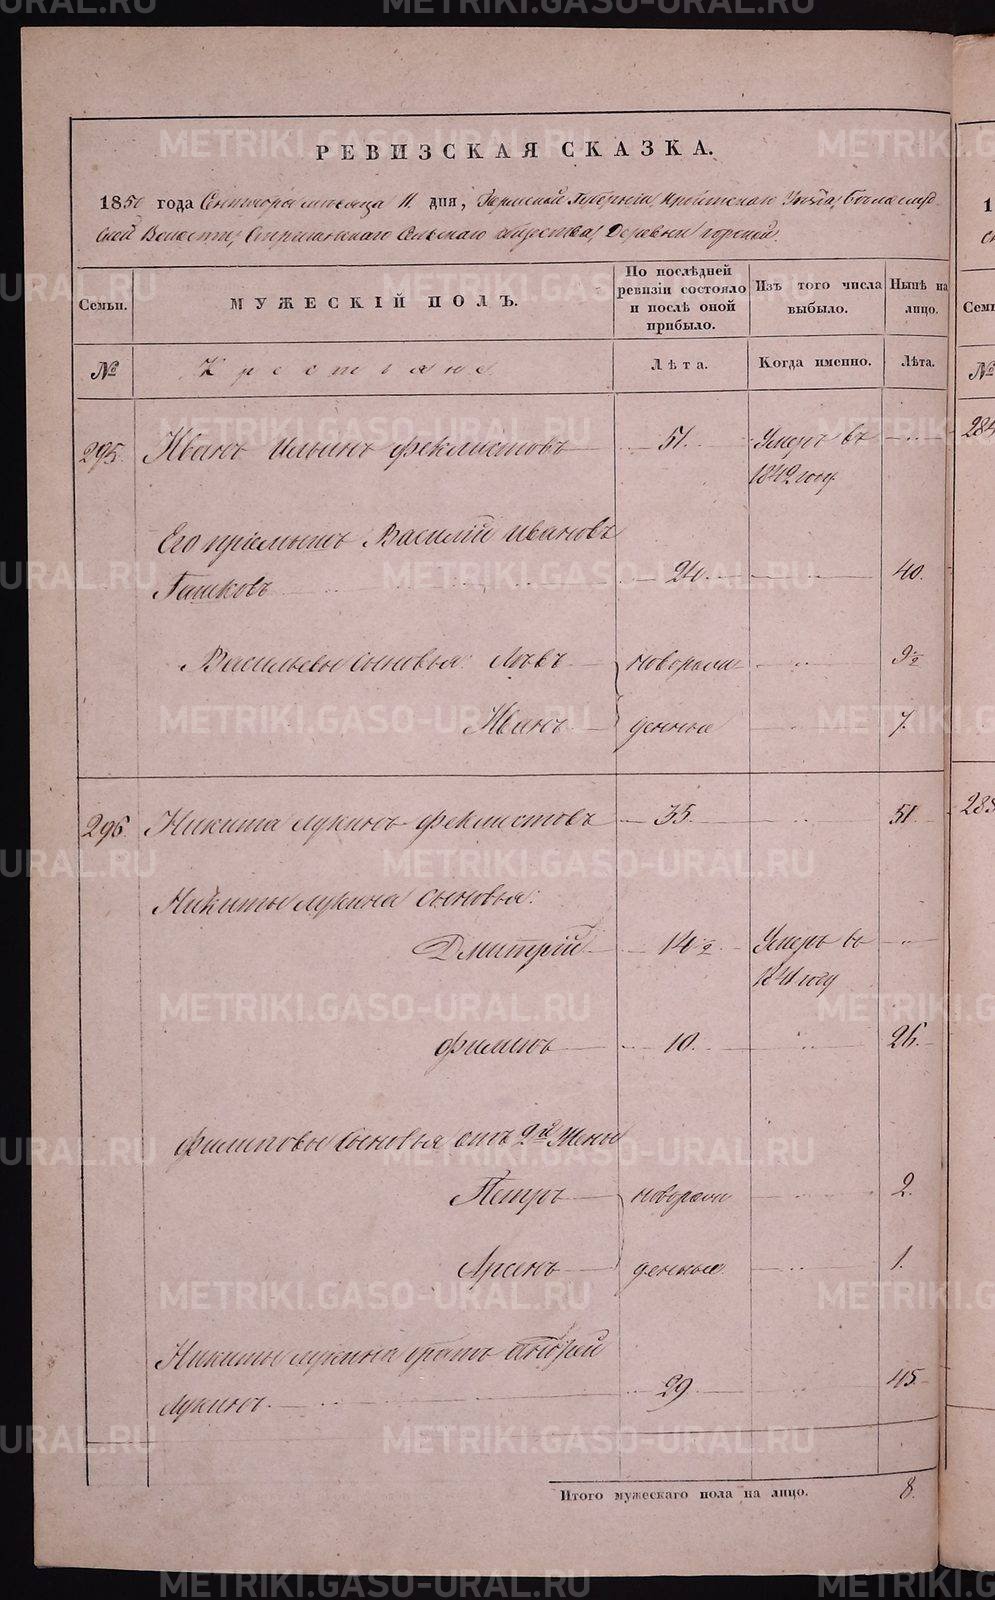 РЕВИЗСКАЯ СКАЗКА.
1850 года Сентября месяца 11 дня, Пермской Губерніи, Уезда,
ской Волости, Сельскаго общества, Деревни Горской.
Семьи. МУЖЕСКІЙ ПОЛЪ. По послѣдней ревизіи состояло и послѣ оной прибыло. Изъ того числа выбыло. Нынѣ на лицо.
№ Крестьяне Лѣта. Когда именно. Лѣта.
295. Иванъ Ильинъ Феклистовъ 51. Умеръ въ
1842 году
Его пріемышъ Василій Ивановъ
Пашковъ 24. 40.
Васильевы сыновья: Львъ новорож- 9 1/2
Иванъ денные 7.
296. Никита Лукинъ Феклистовъ 35. 51
Никиты Лукина сыновья:
Дмитрій 14 1/2 Умеръ въ
1841 году
Филипъ 10. 26.
Филиповы сыновья отъ 2й жены
Петръ новорож 2.
Арсенъ денные 1.
Никиты Лукина братъ Андрей
Лукинъ. 29. 45
Итого мужескаго пола на лицо. 8.
284
285
METRIKI.GASO-URAL.RU